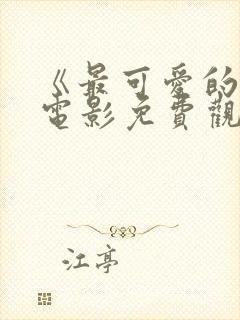 《最可爱的
電影免費觀
江亭